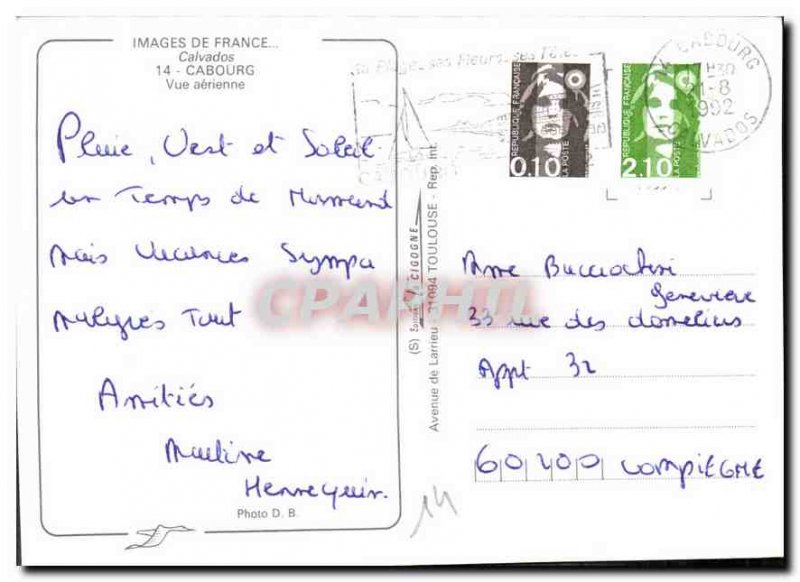 IMAGES DE FRANCE...
Calvados
14 - CABOURG
Vue aérienne
Pluie, Vent et Soleil
un Temps de Normand
mais Vacances Sympa
malgres Tout
Amitiés
Hennequin.
Photo D. B.
(S) EDITIONS CIGOGNE
Avenue de Larrieu - 31094 TOULOUSE - Rep. Int.
CPAPHIL
sa Plage, ses Fleurs, ses Fêtes
14 CABOURG
1-8
1992
CALVADOS
REPUBLIQUE FRANÇAISE
0.10
LA POSTE
REPUBLIQUE FRANÇAISE
2.10
LA POSTE
Mme
Geneviève
33 rue des
Appt 32
60200 COMPIEGNE
14